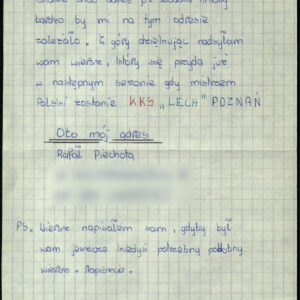 bardzo by mi na tym adresie
zależało. Z góry dziękując nadsyłam
wam wiersz, który się przyda już
w następnym sezonie gdy mistrzem
Polski zostanie KKS „LECH” POZNAŃ
Oto mój adres
Rafał Piechota
PS. Wiersz napisałem sam, gdyby był
wam jeszcze kiedyś potrzebny podobny
wiersz - Napiszcie.